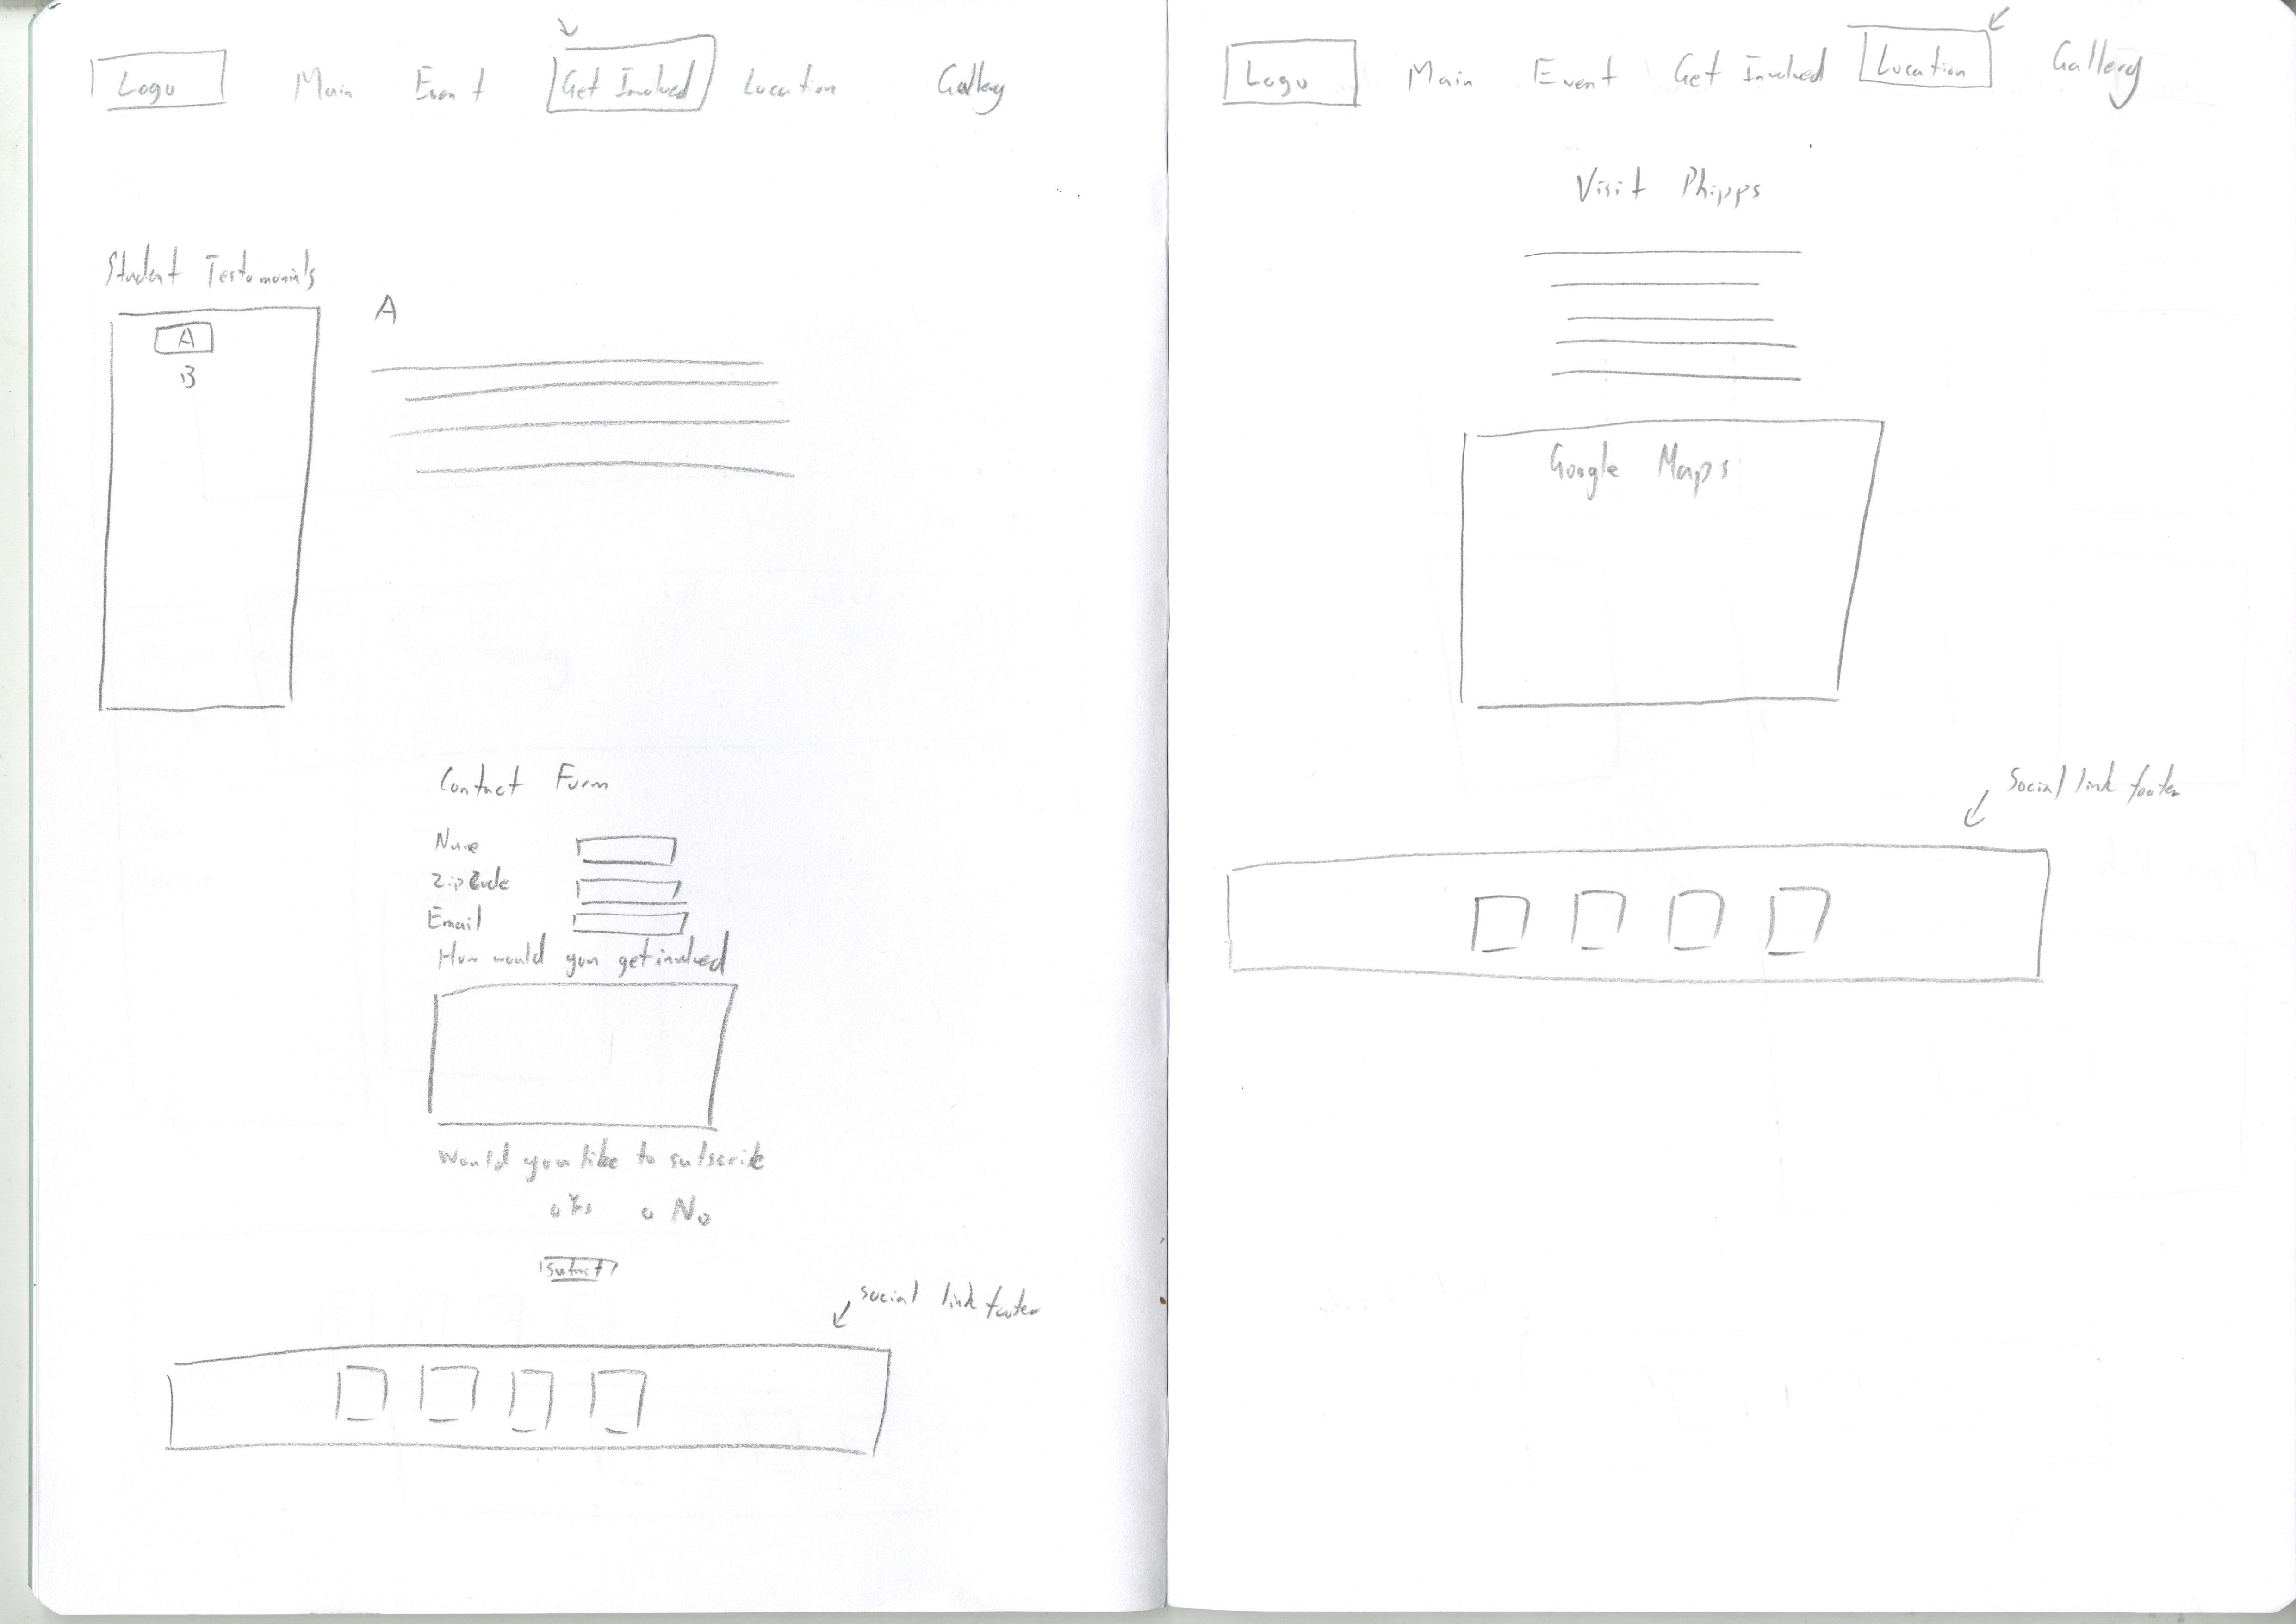 Logo Main Event Get Involved Location Gallery
Student Testomonials
A
B
A
Contact Form
Name
Zip Code
Email
How would you get involved
Would you like to subscribe
Yes No
Submit
social link footer
Logo Main Event Get Involved Location Gallery
Visit Phipps
Google Maps
Social link footer